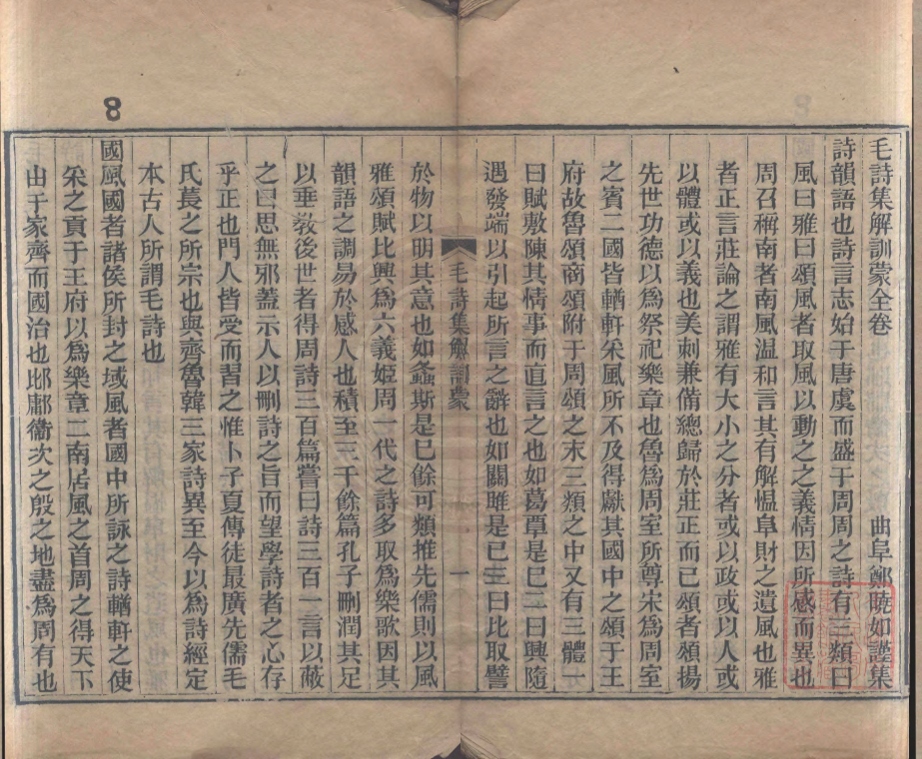 毛詩集解訓蒙全卷 曲阜鄭曉如謹集
詩韻語也詩言志始于唐虞而盛于周周之詩有三類曰
風曰雅曰頌風者取風以動之之義情因所感而異也
周召稱南者南風温和言其有解愠阜財之遺風也雅
者正言莊論之謂雅有大小之分者或以政或以人或
以體或以義也美刺兼備總歸於莊正而已頌者頌揚
先世功德以爲祭祀樂章也魯爲周室所尊宋爲周室
之賓二國皆輶軒采風所不及得獻其國中之頌于王
府故魯頌商頌附于周頌之末三類之中又有三體一
曰賦敷陳其情事而直言之也如葛覃是巳二曰興隨
遇發端以引起所言之辭也如關雎是已三曰比取譬
毛詩集解訓蒙 一
於物以明其意也如螽斯是巳餘可類推先儒則以風
雅頌賦比興爲六義姬周一代之詩多取爲樂歌因其
韻語之調易於感人也積至三千餘篇孔子刪潤其足
以垂敎後世者得周詩三百篇嘗曰詩三百一言以蔽
之曰思無邪蓋示人以刪詩之旨而望學詩者之心存
乎正也門人皆受而習之惟卜子夏傳徒最廣先儒毛
氏萇之所宗也與齊魯韓三家詩異至今以爲詩經定
本古人所謂毛詩也
國風國者諸侯所封之域風者國中所詠之詩輶軒之使
采之貢于王府以爲樂章二南居風之首周之得天下
由于家齊而國治也邶鄘衞次之殷之地盡爲周有也
8